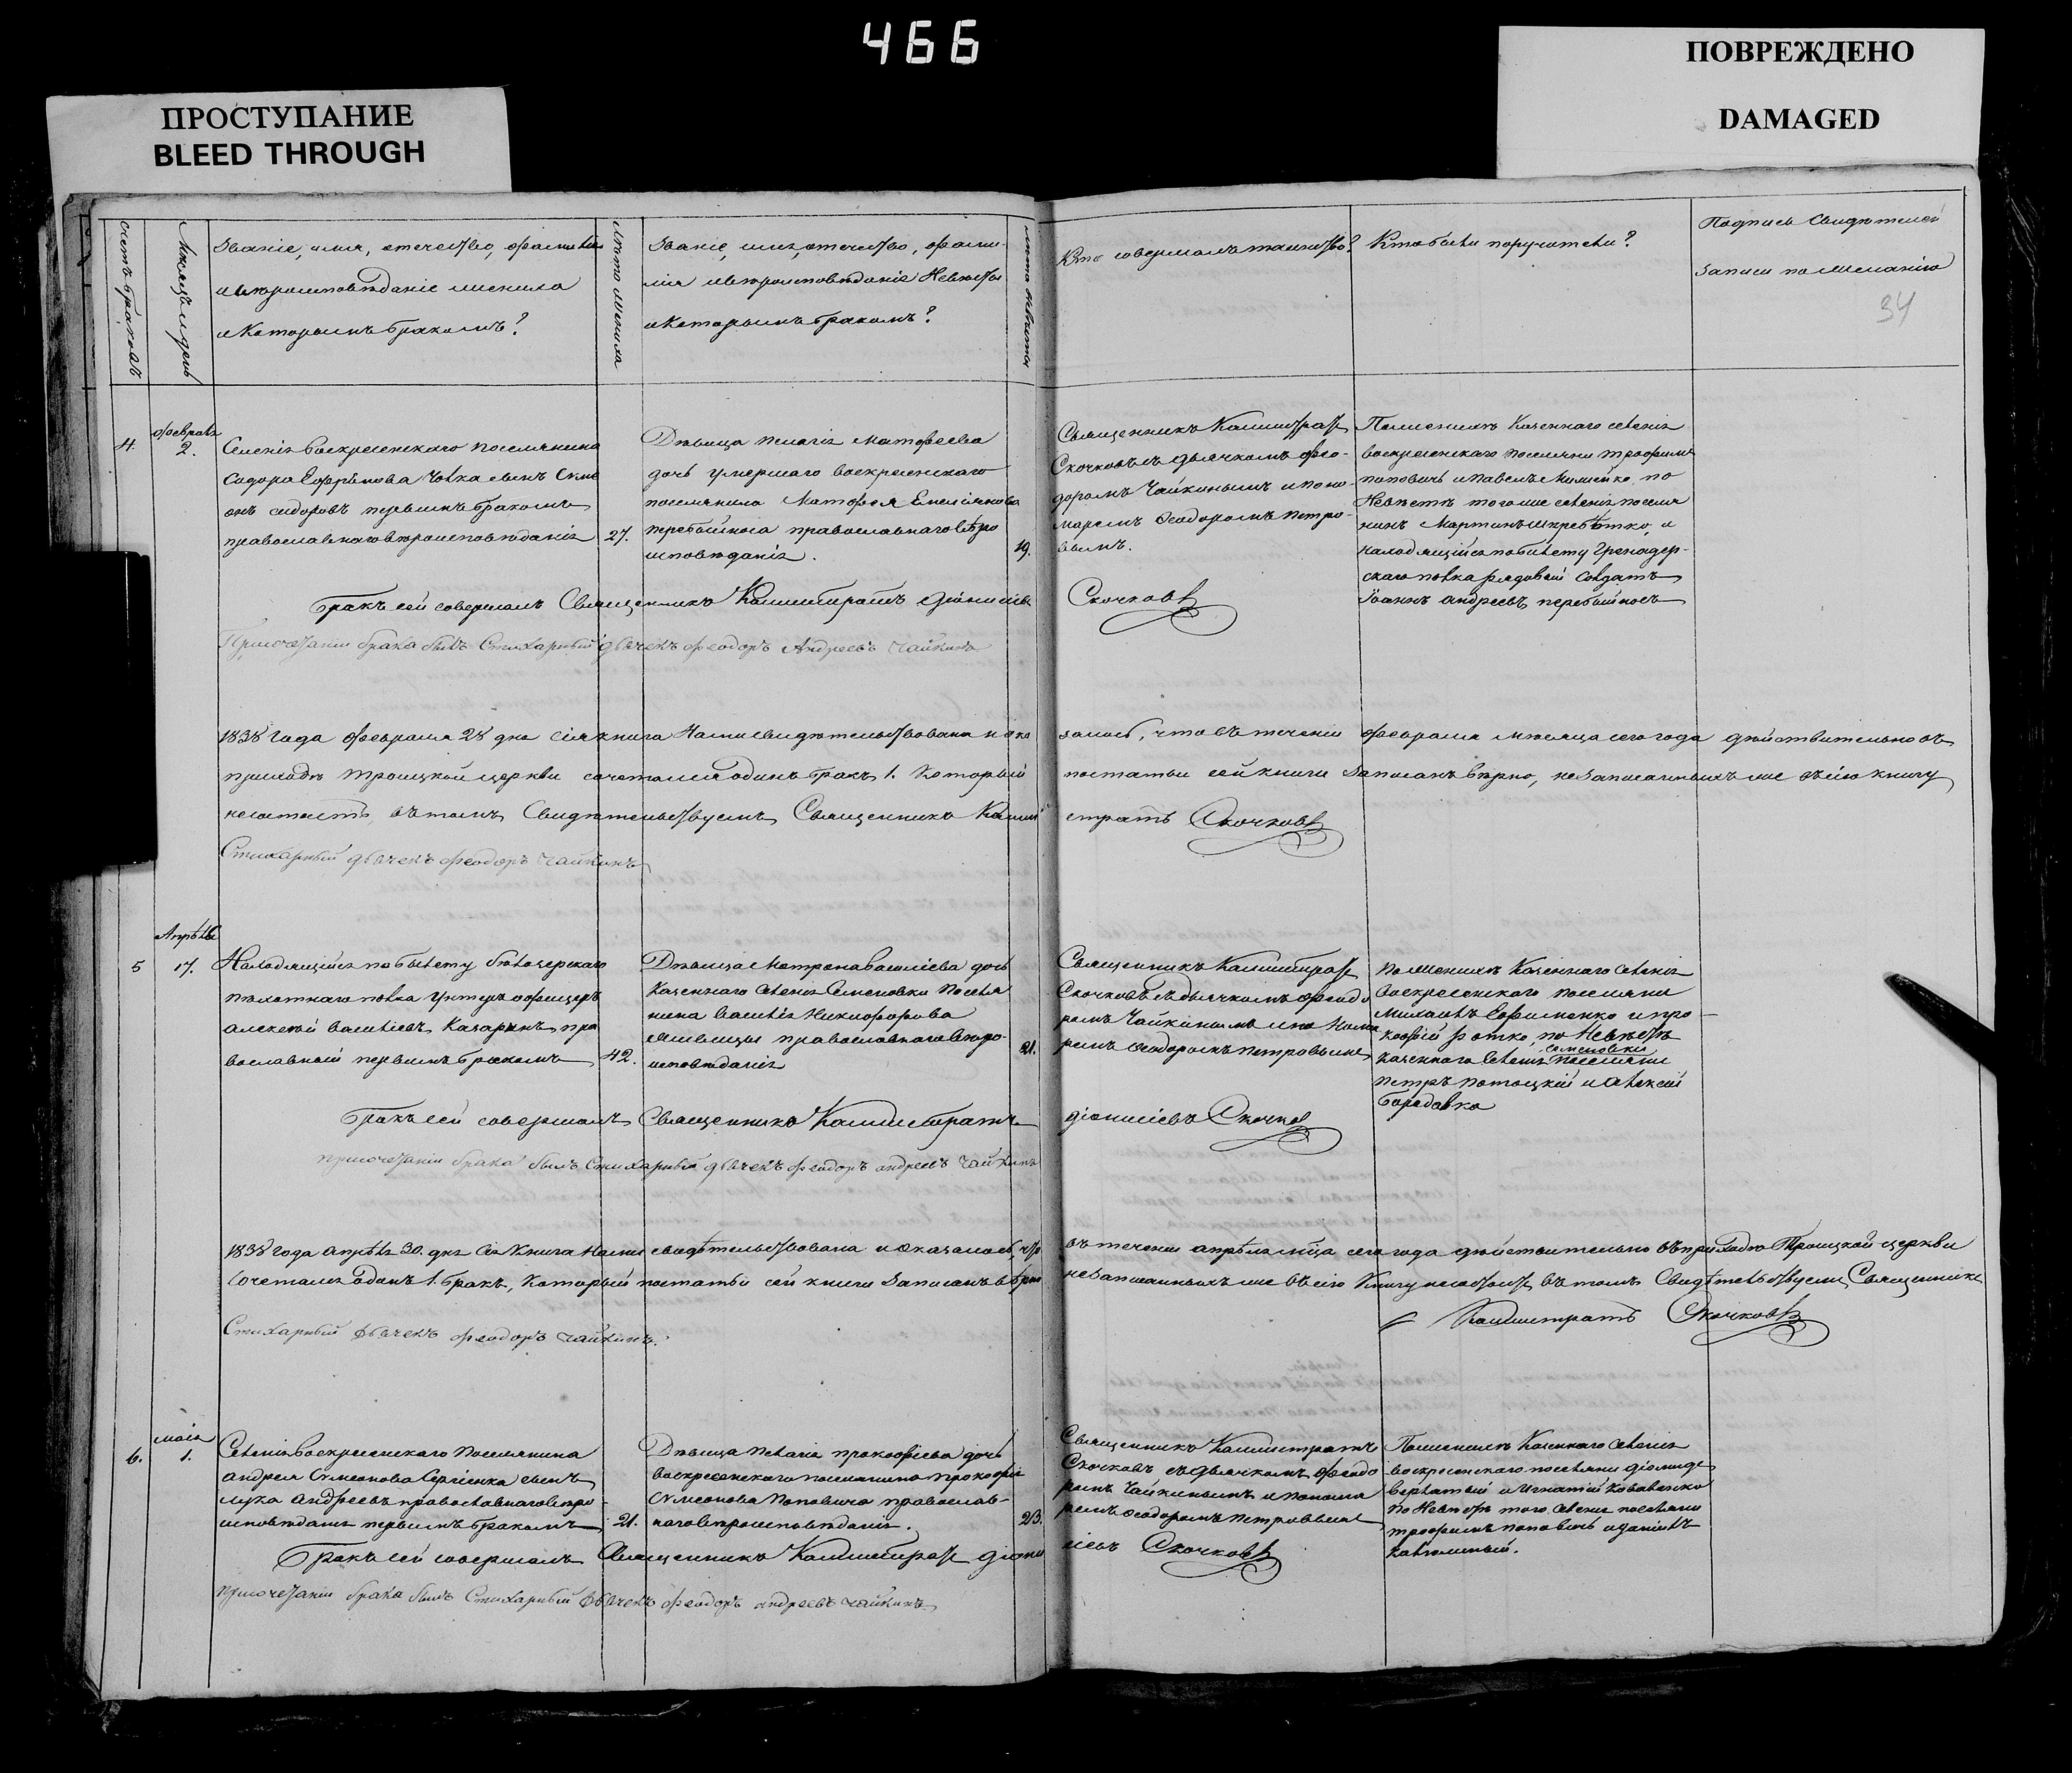 466
ПРОСТУПАНИЕ
BLEED THROUGH
ПОВРЕЖДЕНО
DAMAGED
Счетъ браковъ
Мѣсяцъ и день
Званіе, имя, отечество, фамилія
и вѣроисповѣданіе жениха
и Которымъ бракомъ?
Лѣто жениха
Званіе, имя, отечество, фами-
лія и вѣроисповѣданіе Невѣсты
и Которымъ бракомъ?
Лѣто невѣсты
Кто совершалъ таинство?
Кто были поручители?
Подпись Свидѣтелей
записи по желанію
34
4.
февраля
2.
Селенія Воскресенскаго поселянина
Сидора Сынъ
сидоровъ первымъ бракомъ
православнаго вѣроисповѣданія
27.
Дѣвица Пелагія Матфеева
дочь умершаго воскресенскаго
поселянина Матфея Емеліянова
перебыйноса православнаго вѣро
исповѣданія.
19.
Священникъ Калистратъ
Скочковъ съ дьячкомъ Фео-
доромъ Чайкинымъ и поно-
маремъ Феодоромъ Петро-
вымъ.
Скочковъ
По женихѣ Казеннаго селенія
воскресенскаго поселяни трофимъ
поповичь и павелъ по
Невѣстѣ того же селенія поселя
нинъ Мартинъ и
находящійся по билету Гренадер-
скаго полка рядовый Солдатъ
Іоаннъ андреевъ перебыйносъ
Бракъ сей совершалъ Священникъ Калистратъ Діонисіев
При сочетаніи брака былъ Стихарный дьячекъ Феодоръ Андреевъ Чайкинъ
1838 года февраля 28 дня сія книга Нами свидѣтельствована и ока залось, что въ теченіи февраля мѣсяца сего года дѣйствительно въ
приходѣ Троицкой церкви сочетался одинъ бракъ 1. Который по статьи сей книги записанъ вѣрно, не записанныхъ же въ сію книгу
въ томъ Свидѣтельствуемъ Священникъ Кали стратъ Скочковъ
Стихарный дьячекъ Феодоръ Чайкинъ
5
Апрѣля
17.
Находящійся по билету
полка Унтеръ офицеръ
алексѣй васильевъ Казаринъ пра
вославный первымъ бракомъ
42.
Дѣвица Матрона василіева дочь
Казеннаго Селенія Семеновки Поселя
нина Василія Никифорова
православнаго вѣро-
исповѣданія
21.
Священникъ Калистратъ
Скочковъ съ дьячкомъ Феодо
ромъ Чайкинымъ и по Нома
ремъ Феодоромъ петровымъ
По женихѣ Казеннаго Селенія
Воскресенскаго поселяни
Михаилъ Ефименко и про-
кофій по Невѣстѣ
казеннаго Селенія семеновки поселяни
петръ потоцкій и алексѣй
бородавка
Бракъ сей совершалъ Священникъ Калистратъ діонисіевъ Скочковъ
При сочетаніи брака былъ Стихарный дьячекъ Феодоръ андреевъ Чайкинъ
1838 года апрѣля 30. дня сія Книга Нами свидѣтельствована и оказалось, что въ теченіи апрѣля мѣсяца сего года дѣйствительно въ приходѣ Троицкой церкви
Сочетался одинъ 1. бракъ, Который по статьи сей книги записанъ вѣрно не записанныхъ же въ сію Книгу въ томъ Свидѣтельствуемъ Священникъ
Калистратъ Скочковъ
Стихарный дьячекъ Феодоръ Чайкинъ.
6.
маія
1.
Селенія воскресенскаго поселянина
андрея Симеонова Сергіенка сынъ
лука андреевъ православнаго вѣро-
исповѣданія первымъ бракомъ
21.
Дѣвица Пелагія прокофіева дочь
воскресенскаго поселянина прокофія
Симеонова Поповича православ-
наго вѣроисповѣданія.
23.
Священникъ Калистратъ
Скочковъ съ дьячкомъ Феодо
ромъ Чайкинымъ и понома
ремъ Феодоромъ петровымъ
По женихѣ Казеннаго Селенія
воскресенскаго поселяни діомидъ
и игнатій Коваленко
по Невѣстѣ того Селенія поселяни
трофимъ поповичь и даніилъ
Бракъ сей совершалъ Священникъ Калистратъ діони сіевъ Скочковъ
При сочетаніи брака былъ Стихарный дьячекъ Феодоръ андреевъ Чайкинъ